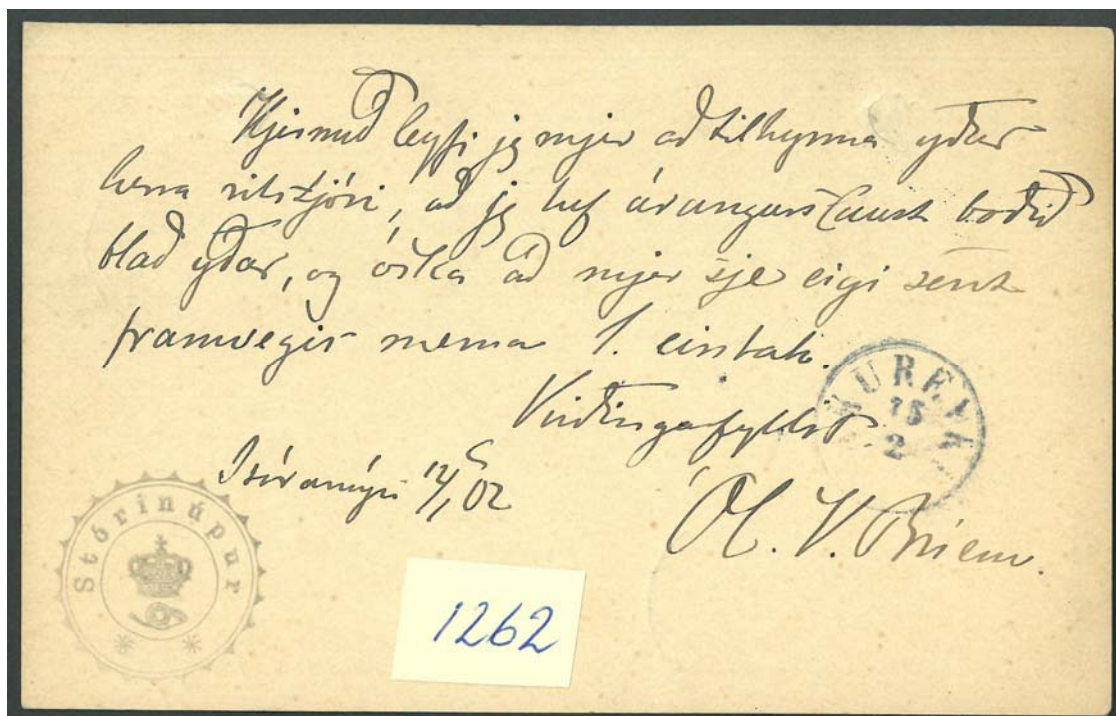 Hjermeð leyfi jeg mjer að tilkynna yðar
herra ritstjóri, að jeg hef árangurslaust boðið
blað yðar, og óska að mjer sje eigi sent
framvegis nema 1. eintak.
Virðingafyllst.
12/1 02
Ól. V. Briem.
AUREYR
15
2
Stórinúpur
1262